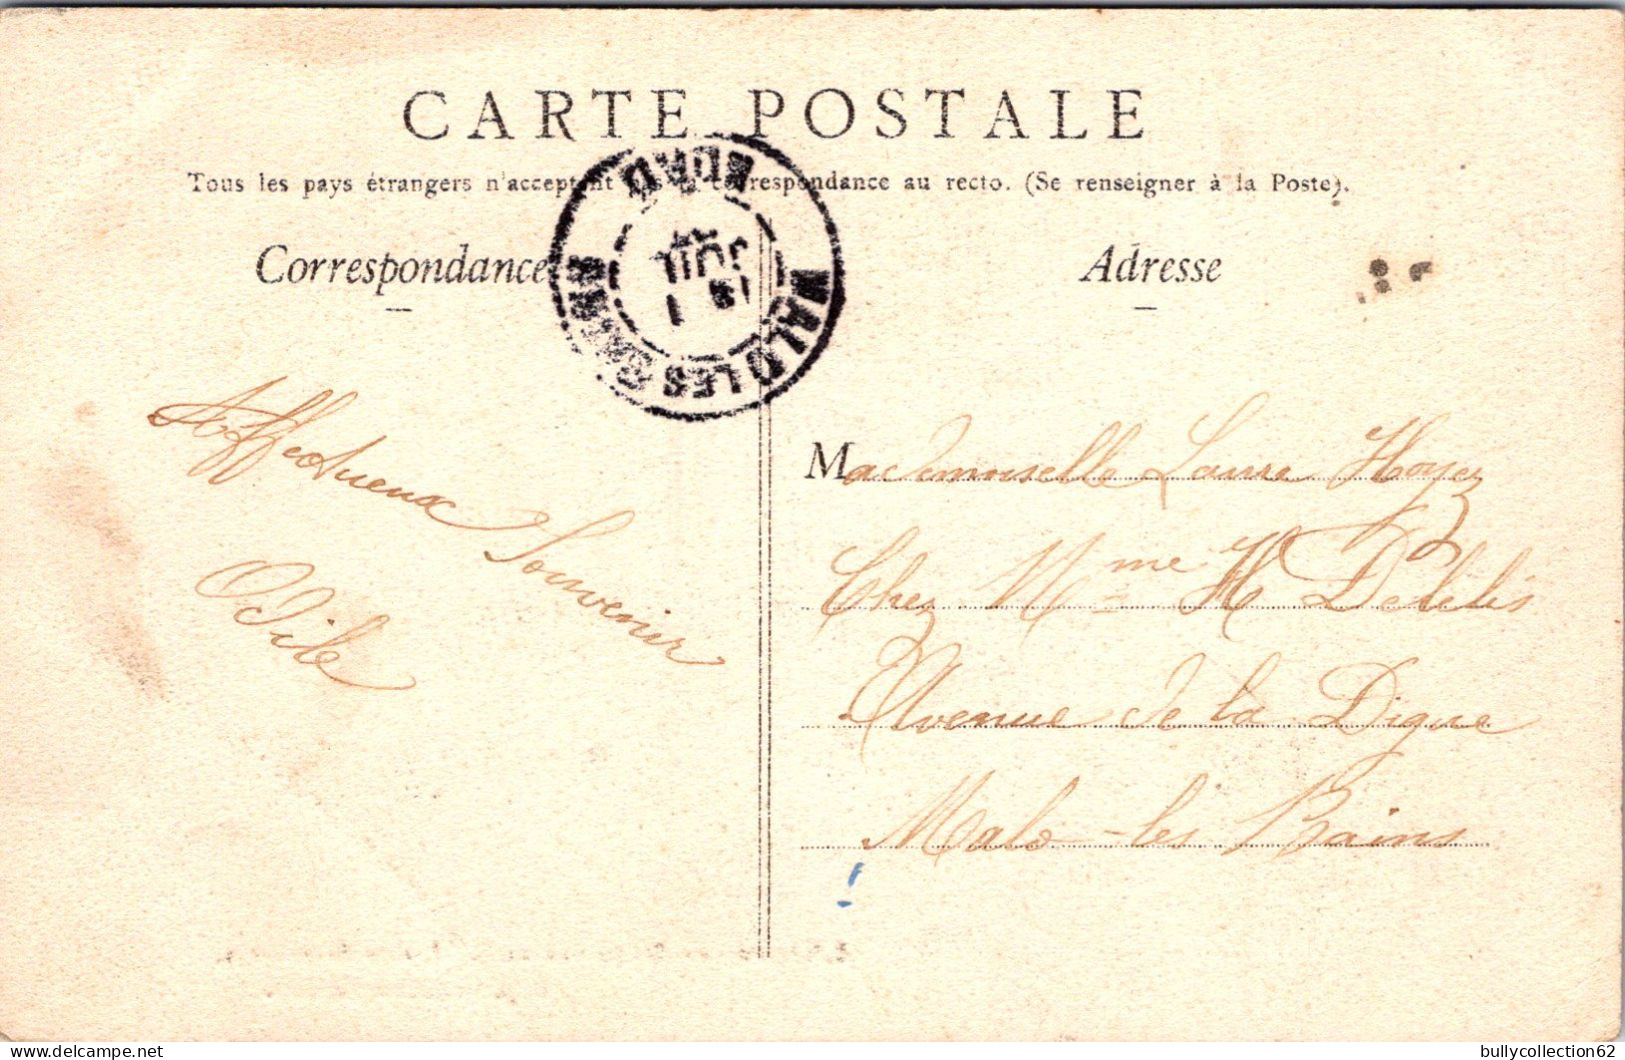 CARTE POSTALE
Tous les pays étrangers n'acceptent pas la correspondance au recto. (Se renseigner à la Poste).
Correspondance
Adresse
MALO LES BAINS
NORD
JUIL
Affectueux Souvenir
Odile
Mademoiselle Laure Hoyez
Chez Mme H Delelis
Avenue de la Digue
Malo-les Bains
bullycollection62